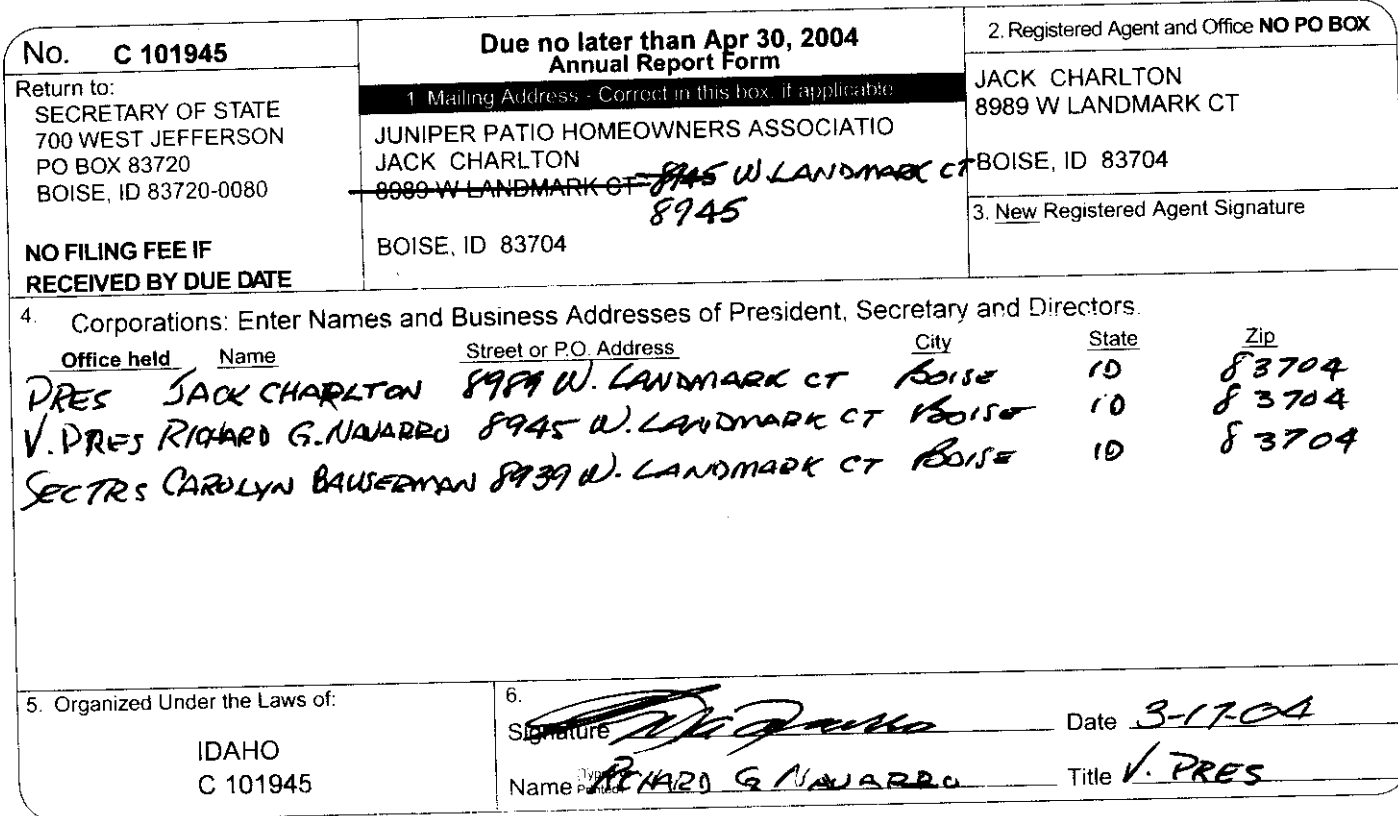 No. C 101945
Return to:
SECRETARY OF STATE
700 WEST JEFFERSON
PO BOX 83720
BOISE, ID 83720-0080
NO FILING FEE IF
RECEIVED BY DUE DATE
Due no later than Apr 30, 2004
Annual Report Form
1 Mailing Address - Correct in this box, if applicable
JUNIPER PATIO HOMEOWNERS ASSOCIATIO
JACK CHARLTON
8989 W LANDMARK CT 8945 W LANDMARK CT
8945
BOISE, ID 83704
2. Registered Agent and Office NO PO BOX
JACK CHARLTON
8989 W LANDMARK CT
BOISE, ID 83704
3. New Registered Agent Signature
4. Corporations: Enter Names and Business Addresses of President, Secretary and Directors.
Office held Name Street or P.O. Address City State Zip
PRES JACK CHARLTON 8989 W. LANDMARK CT BOISE ID 83704
V. PRES RICHARD G. NAVARRO 8945 W. LANDMARK CT BOISE ID 83704
SECTRS CAROLYN BAUSERMAN 8939 W. LANDMARK CT BOISE ID 83704
5. Organized Under the Laws of:
IDAHO
C 101945
6.
Signature Date 3-17-04
Name Typed Printed RICHARD G NAVARRO Title V. PRES